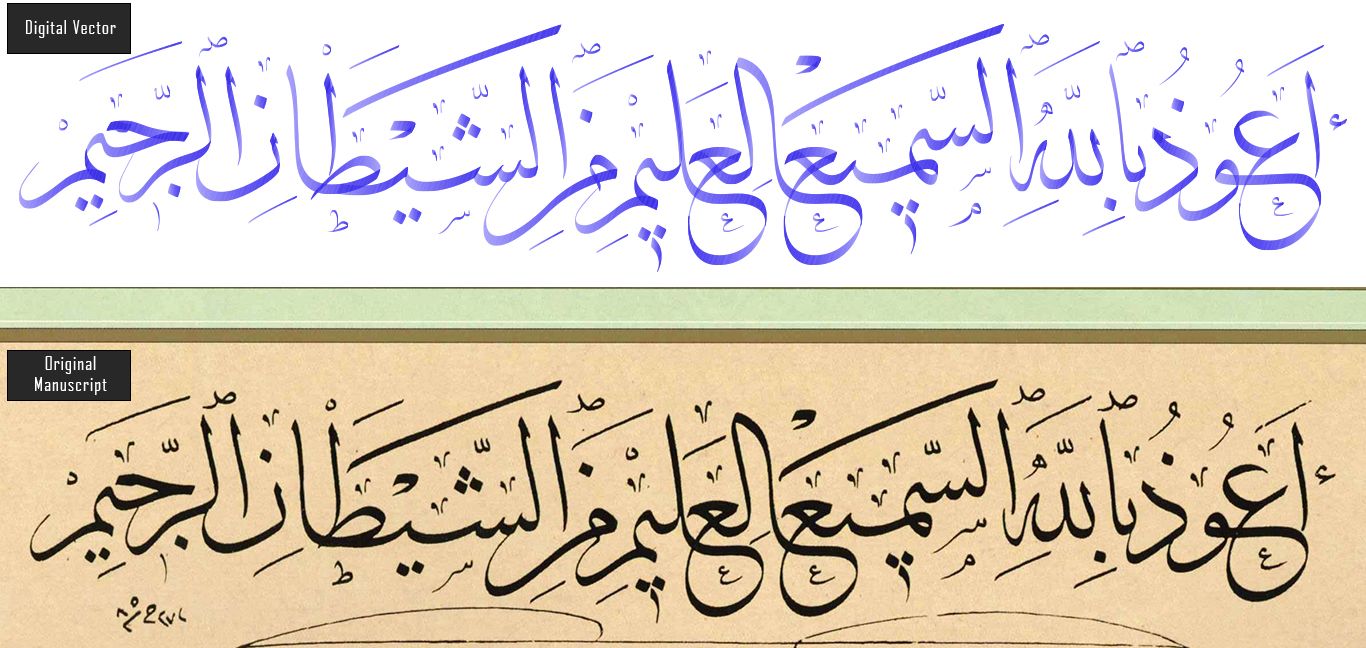 Digital Vector
أَعُوذُ بِاللَّهِ السَّمِيعِ الْعَلِيمِ مِنَ الشَّيْطَانِ الرَّجِيمِ
Original
Manuscript
أَعُوذُ بِاللَّهِ السَّمِيعِ الْعَلِيمِ مِنَ الشَّيْطَانِ الرَّجِيمِ